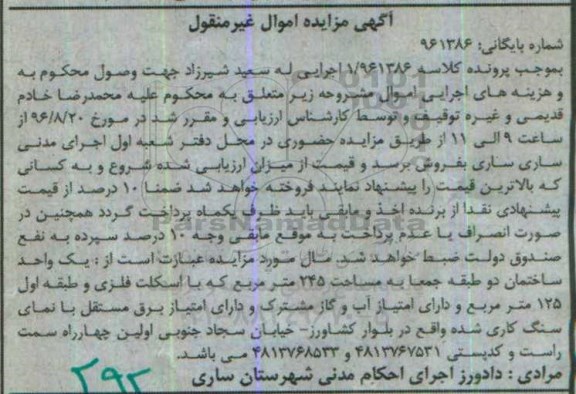 آگهی مزایده اموال غیرمنقول
شماره بایگانی: ۹۶۱۳۸۶
بموجب پرونده کلاسه ۱/۹۶۱۳۸۶ اجرایی له سعید شیرزاد جهت وصول محکوم به
و هزینه های اجرایی اموال مشروحه زیر متعلق به محکوم علیه محمدرضا خادم
قدیمی و غیره توقیف و توسط کارشناس ارزیابی و مقرر شد در مورخ ۹۶/۸/۲۰ از
ساعت ۹ الی ۱۱ از طریق مزایده حضوری در محل دفتر شعبه اول اجرای مدنی
ساری بفروش برسد و قیمت از میزان ارزیابی شده شروع و به کسانی
که بالاترین قیمت را پیشنهاد نمایند فروخته خواهد شد ضمنا ۱۰ درصد از قیمت
پیشنهادی نقدا از برنده اخذ و مابقی باید ظرف یکماه پرداخت گردد همچنین در
صورت انصراف یا عدم پرداخت به موقع مابقی وجه ۱۰ درصد سپرده به نفع
صندوق دولت ضبط خواهد شد. مال مورد مزایده عبارت است از : یک واحد
ساختمان دو طبقه جمعا به مساحت ۲۴۵ متر مربع که با اسکلت فلزی و طبقه اول
۱۲۵ متر مربع و دارای امتیاز آب و گاز مشترک و دارای امتیاز برق مستقل با نمای
سنگ کاری شده واقع در بلوار کشاورز- خیابان سجاد جنوبی اولین چهارراه سمت
راست و کدپستی ۴۸۱۳۷۶۷۵۳۱ و ۴۸۱۳۷۶۸۵۳۳ می باشد.
مرادی : دادورز اجرای احکام مدنی شهرستان ساری
۲۹۲
ParsNamadData